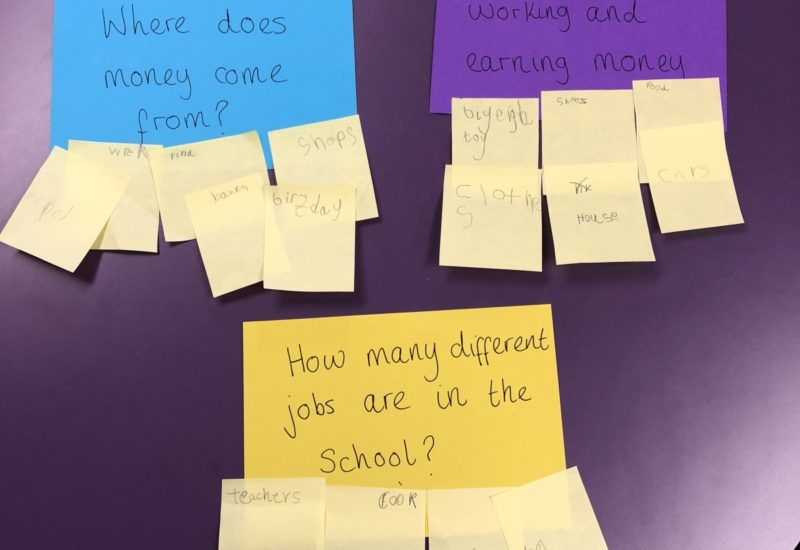 Where does
money come
from?
WerK
Find
banks
birzday
shops
working and
earning money
toy
clothe
s
shoes
House
Food
cars
How many different
jobs are in the
School?
teachers
COOK